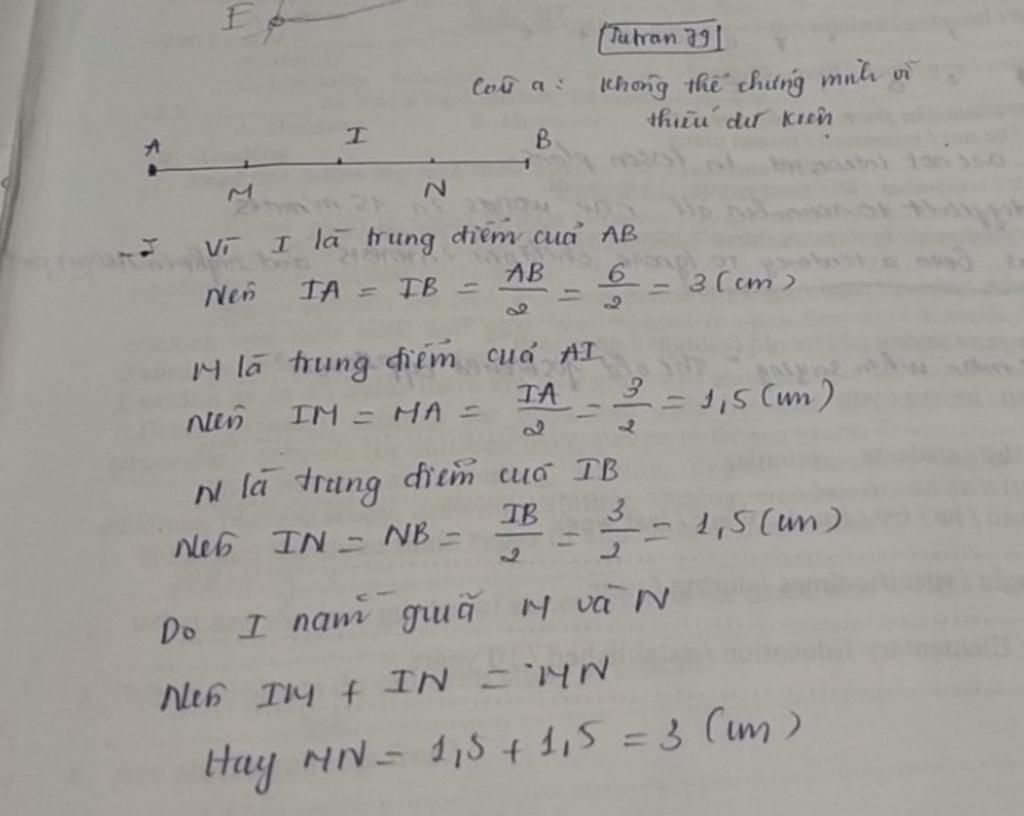 E
Tutran 79
Câu a: Không thể chứng minh vì
thiếu dữ kiện
A I B
M N
Vì I là trung điểm của AB
Nên IA = IB = AB/2 = 6/2 = 3 (cm)
M là trung điểm của AI
Nên IM = MA = IA/2 = 3/2 = 1,5 (cm)
N là trung điểm của IB
Nên IN = NB = IB/2 = 3/2 = 1,5 (cm)
Do I nằm giữa M và N
Nên IM + IN = MN
Hay MN = 1,5 + 1,5 = 3 (cm)